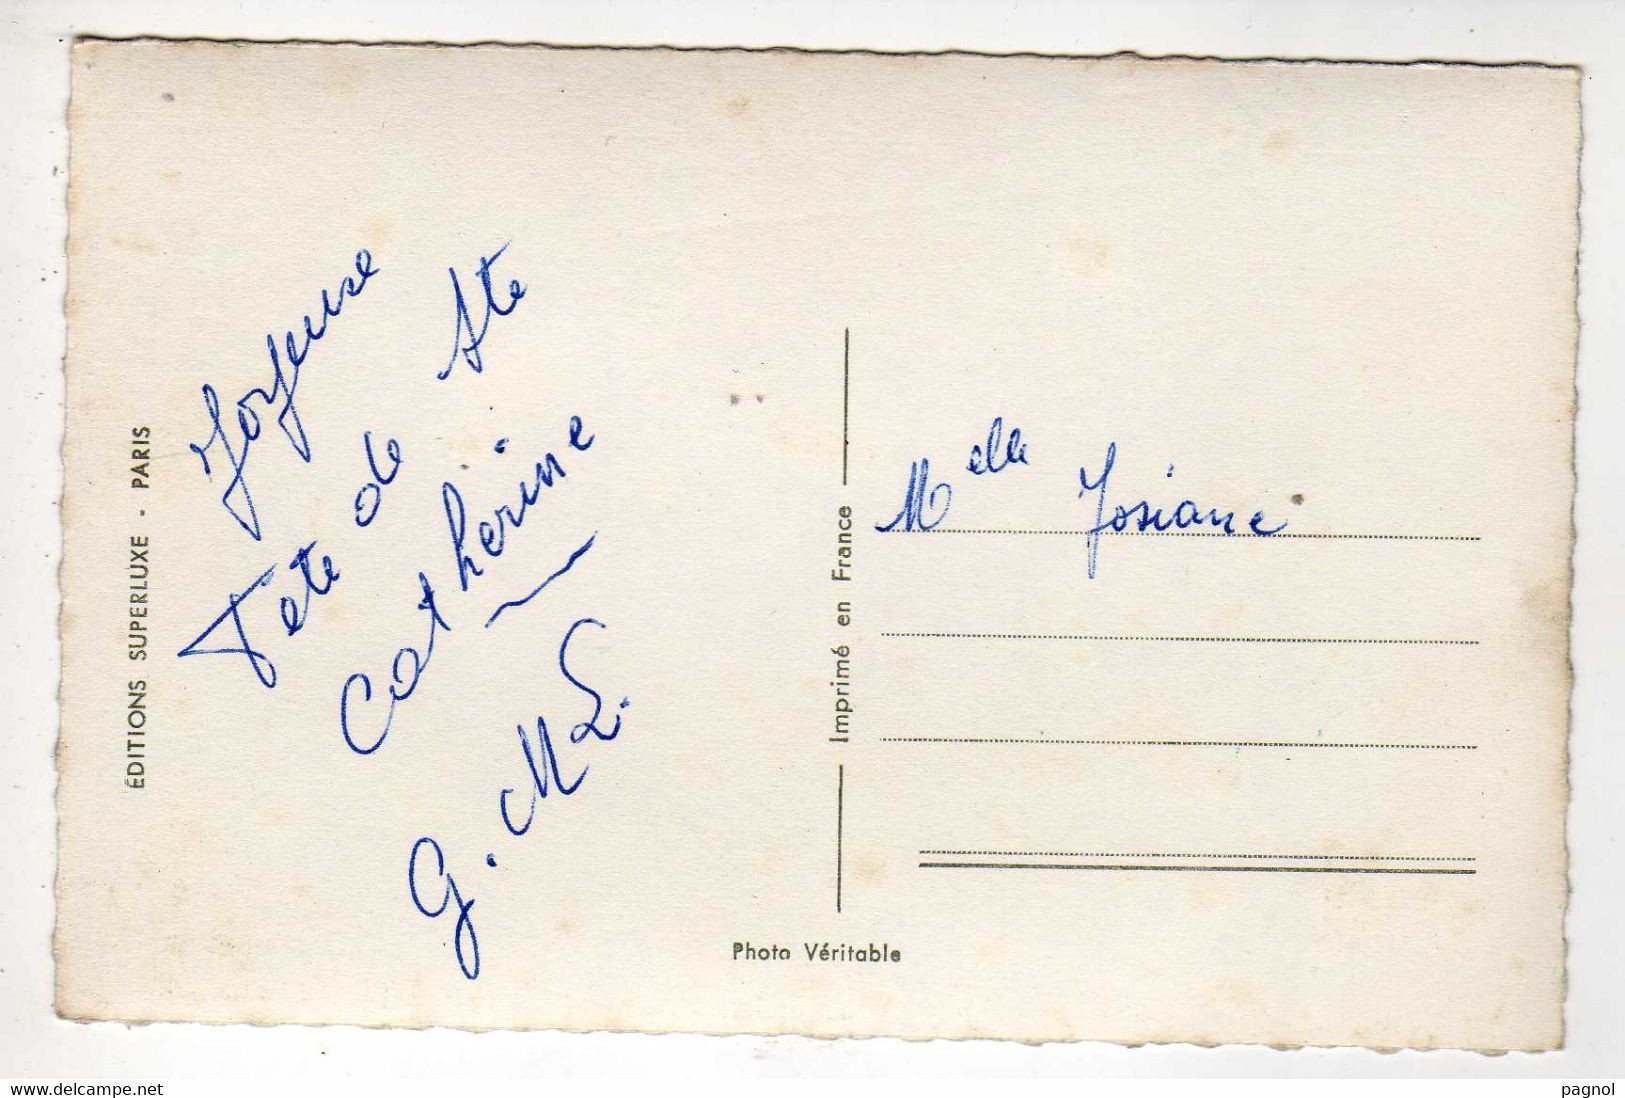 ÉDITIONS SUPERLUXE - PARIS
Joyeuse
Fete de Ste
Catherine
G. M L.
Imprimé en France
Photo Véritable
Melle Josiane
www.delcampe.net
pagnol